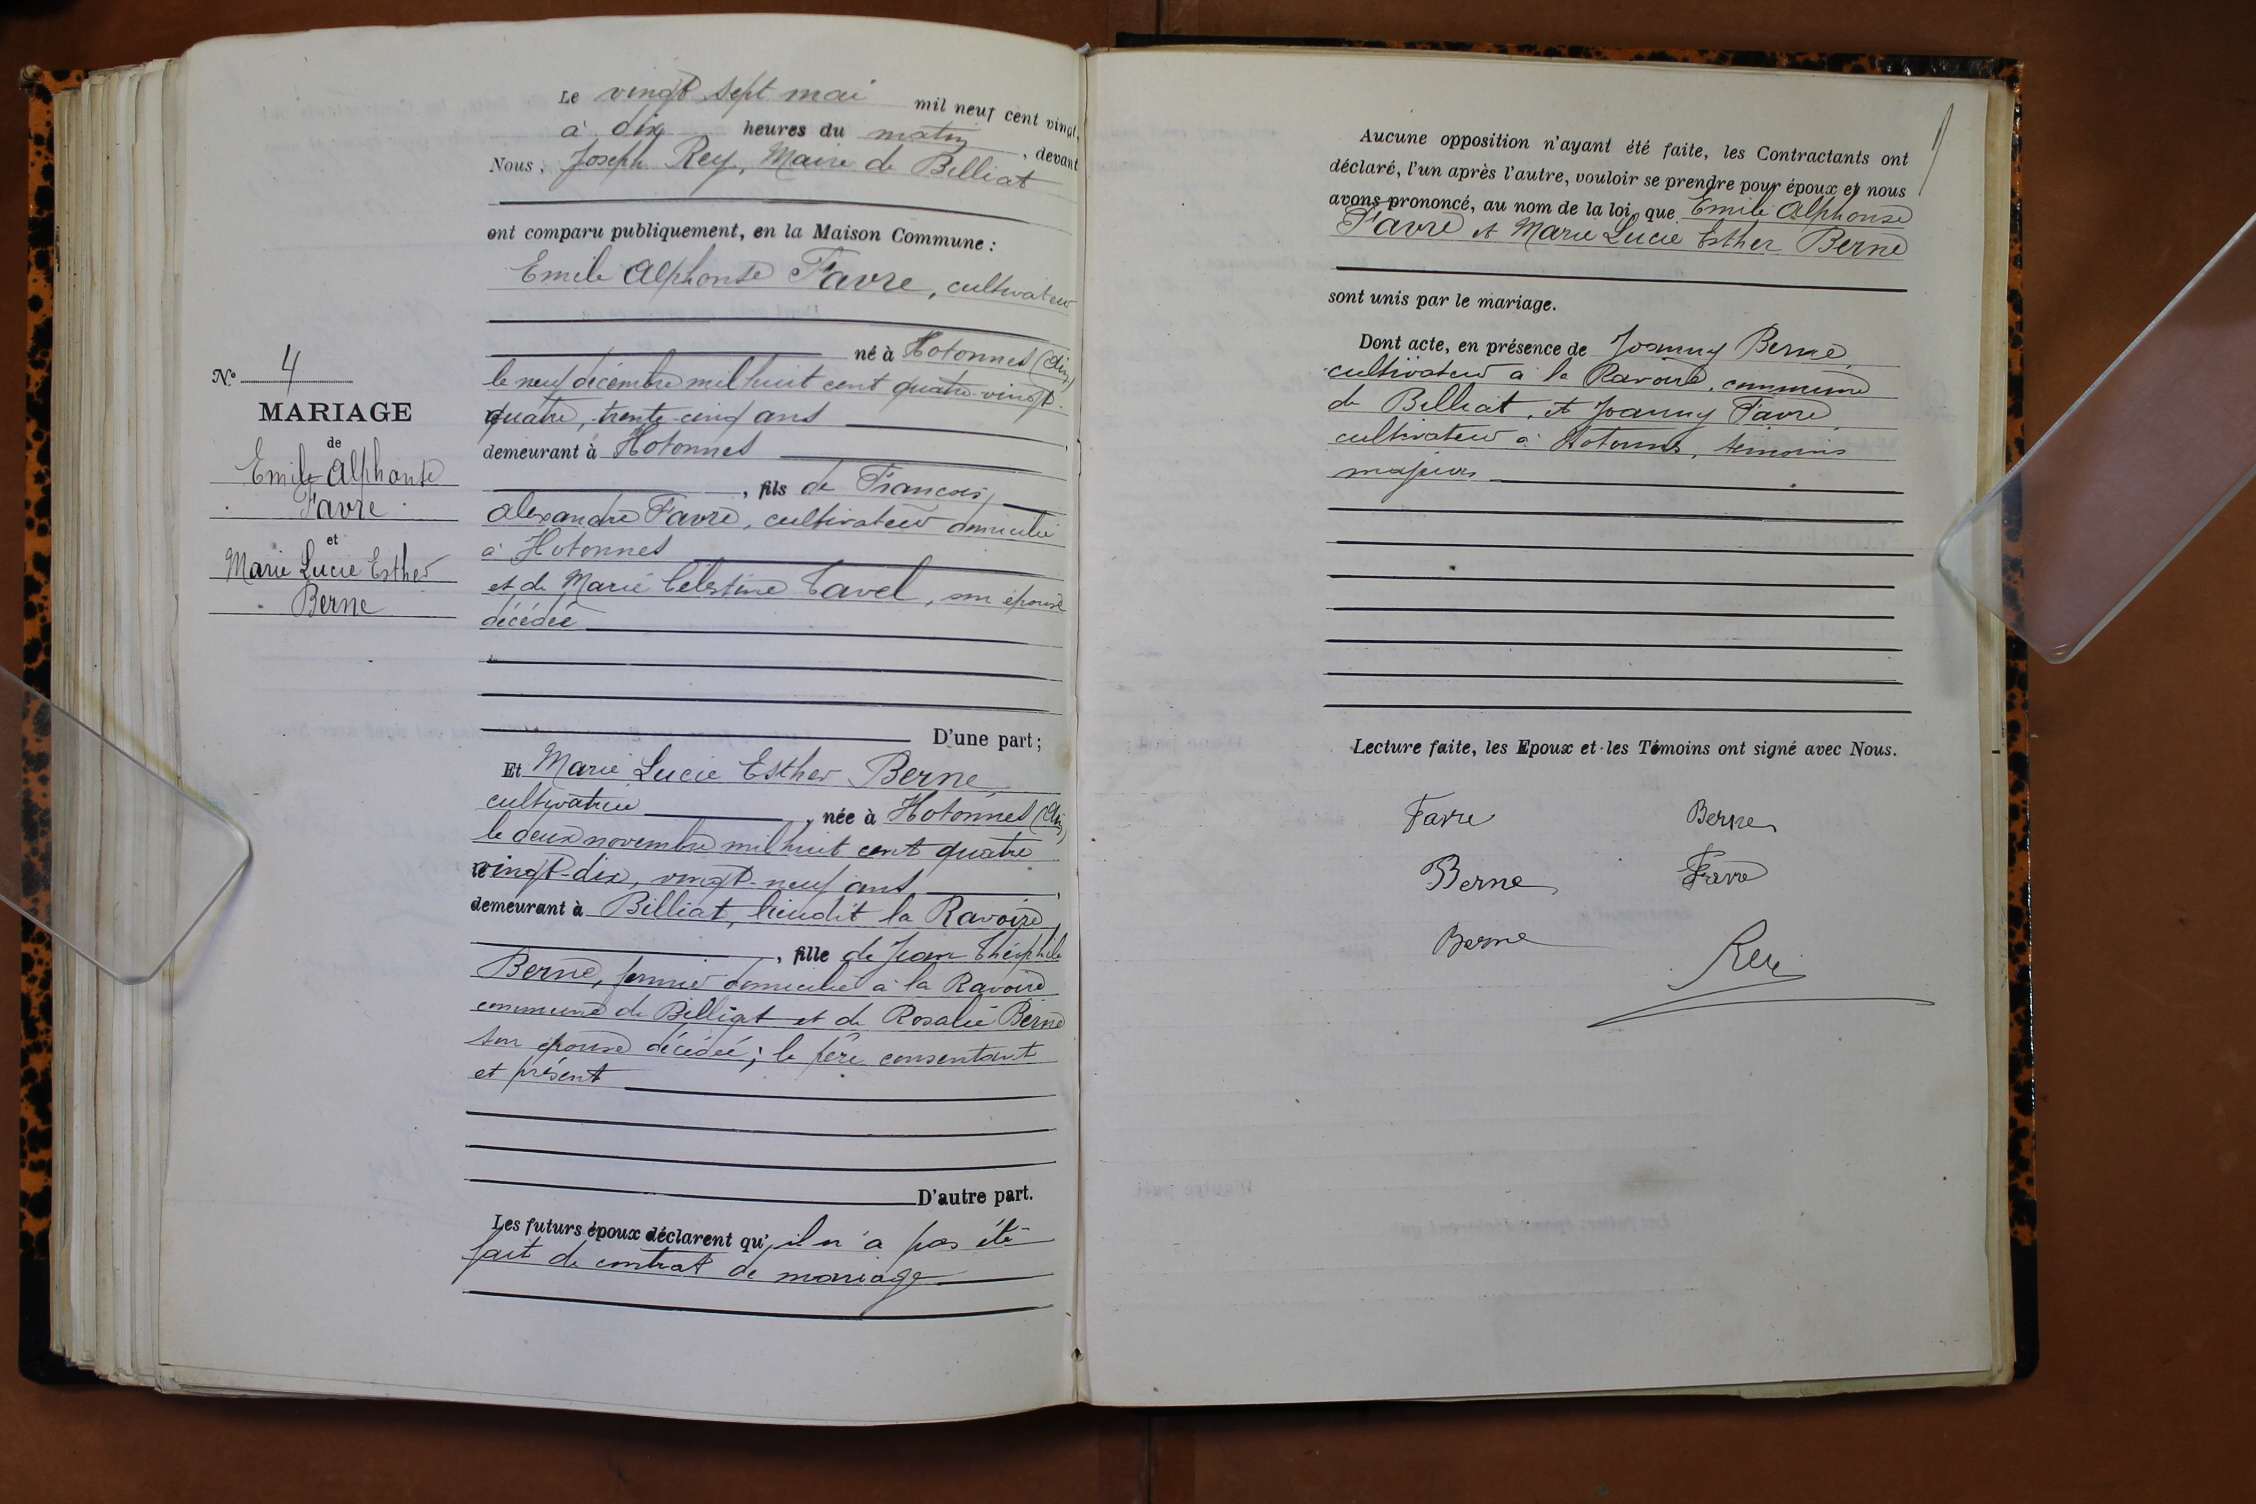 N° 4
MARIAGE
de
Emile Alphonse
Favre
et
Marie Lucie Esther
Berne
Le vingt sept mai mil neuf cent vingt,
à dix heures du matin, devant
Nous, Joseph Rey, Maire de Billiat
ont comparu publiquement, en la Maison Commune :
Emile Alphonse Favre, cultivateur
né à Hotonnes (Ain)
le neuf décembre mil huit cent quatre-vingt-
quatre, trente-cinq ans
demeurant à Hotonnes
, fils de François
Alexandre Favre, cultivateur domicilié
à Hotonnes
et de Marie Célestine Tavel, son épouse
décédée
D'une part ;
Et Marie Lucie Esther Berne,
cultivatrice, née à Hotonnes (Ain)
le deux novembre mil huit cent quatre
vingt-dix, vingt-neuf ans,
demeurant à Billiat, lieudit la Ravoire,
, fille de Jean Théophile
Berne, fermier domicilié à la Ravoire
commune de Billiat et de Rosalie Berne
son épouse décédée ; le père consentant
et présent
D'autre part.
Les futurs époux déclarent qu'il n'a pas été
fait de contrat de mariage
Aucune opposition n'ayant été faite, les Contractants ont
déclaré, l'un après l'autre, vouloir se prendre pour époux et nous
avons prononcé, au nom de la loi, que Emile Alphonse
Favre et Marie Lucie Esther Berne
sont unis par le mariage.
Dont acte, en présence de Joanny Berne,
cultivateur à la Ravoire, commune
de Billiat, et Joanny Favre,
cultivateur à Hotonnes, témoins
majeurs
Lecture faite, les Epoux et les Témoins ont signé avec Nous.
Favre Berne
Berne Favre
Berne Rey